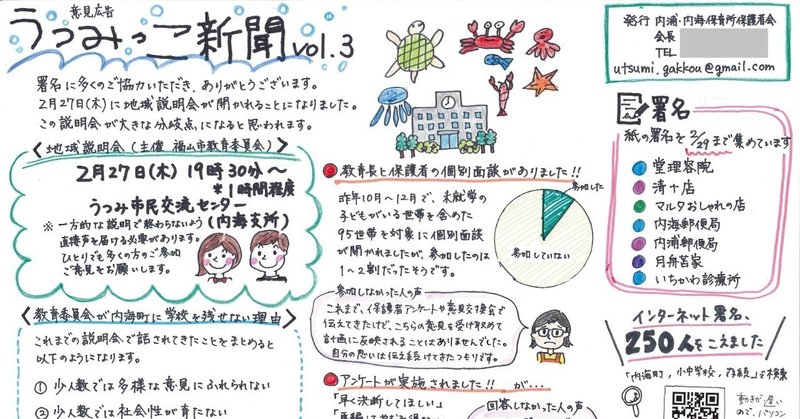 意見広告
うつみっこ新聞 vol.3
署名に多くのご協力いただき、ありがとうございます。
2月27日(木)に地域説明会が開かれることになりました。
この説明会が大きな分岐点になると思われます。
<地域説明会(主催 福山市教育委員会)>
2月27日(木) 19時30分〜
*1時間程度
うつみ市民交流センター
(内海支所)
※一方的な説明で終わらないよう
直接声を届ける必要があります。
ひとりでも多くの方のご参加
ご意見をお願いします。
<教育委員会が内海町に学校を残せない理由>
これまでの説明会で話されてきたことをまとめると
以下のようになります。
① 少人数では多様な意見にふれられない
② 少人数では社会性が育たない
●教育長と保護者の個別面談がありました!!
昨年10月〜12月で、未就学の
子どもがいる世帯を含めた
95世帯を対象に個別面談
が開かれましたが、参加したのは
1〜2割だったそうです。
参加した
参加していない
参加しなかった人の声
これまで、保護者アンケートや意見交換会で
伝えてきたけど、こちらの意見を受け収めて
計画に反映されることはありませんでした。
自分の思いは伝え続けてきたつもりです。
●アンケートが実施されました!! が…
「早く決断してほしい」
回答しなかった人の声
発行 内浦・内海保育所保護者会
会長
TEL
utsumi.gakkou@gmail.com
署名
紙の署名を2/29まで集めています
堂理容院
清十店
マルタおしゃれの店
内海郵便局
内浦郵便局
月舟苔家
いちかわ診療所
インターネット署名、
250人をこえました
「内海町、小中学校、存続」で検索